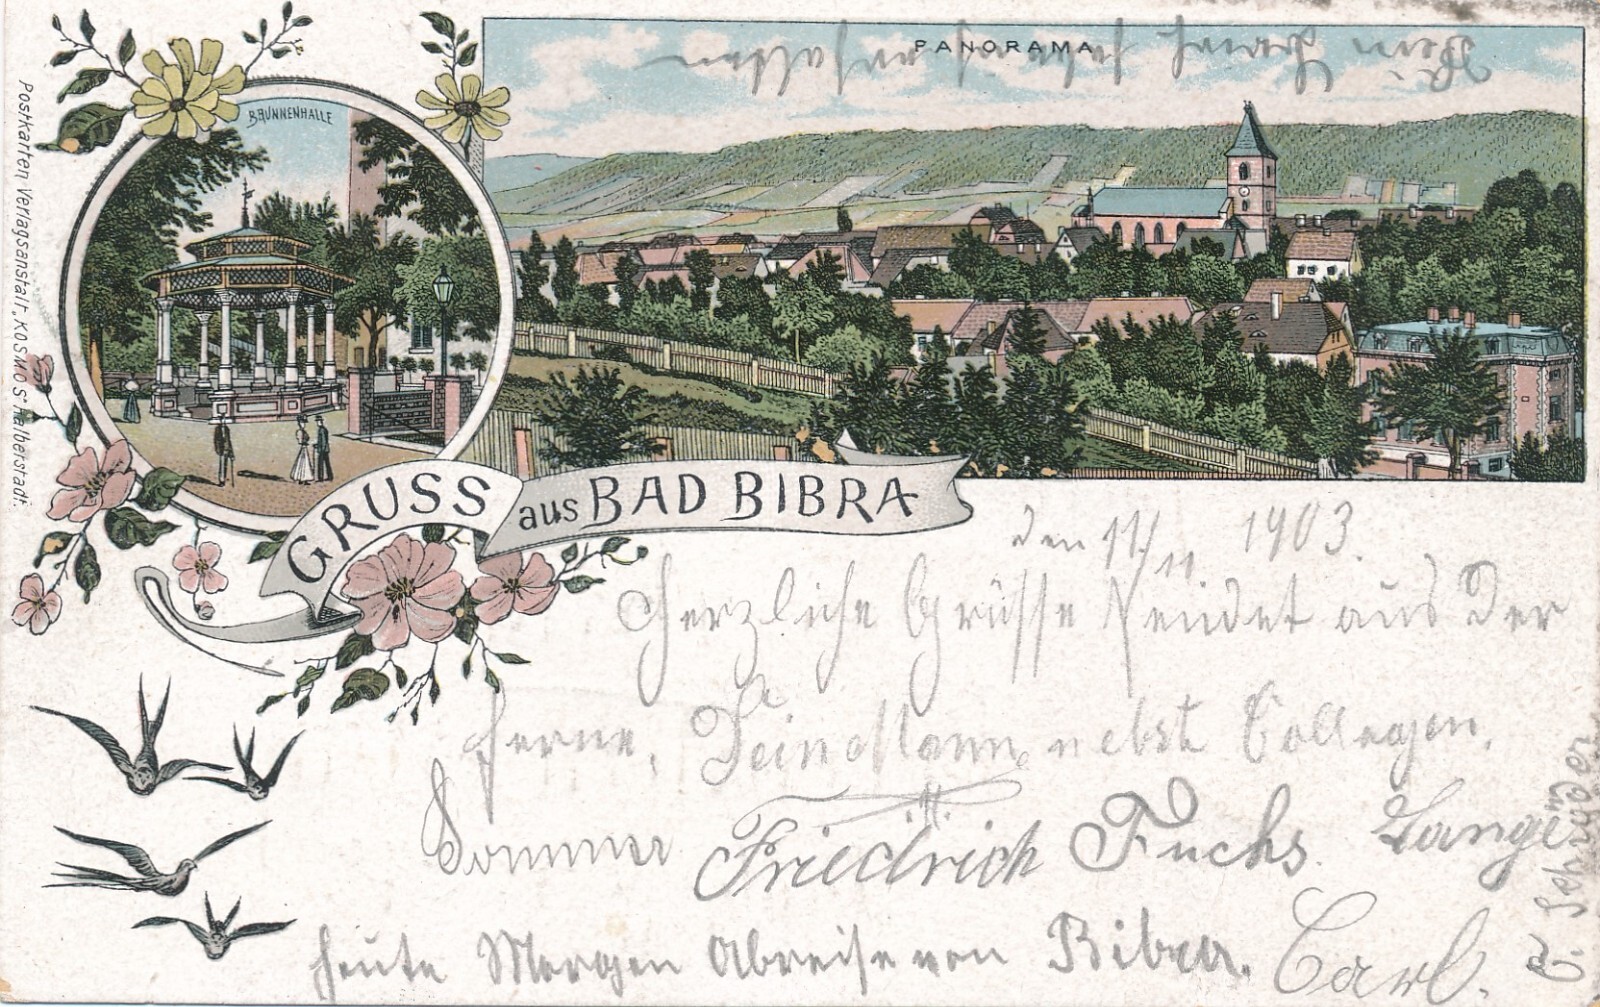 PANORAMA
BRUNNENHALLE
Postkarten Verlagsanstalt „KOSMOS" Halberstadt.
GRUSS aus BAD BIBRA
den 11/11. 1903.
Herzliche Grüsse sendet aus der
Ferne, Dein Mann nebst Collegen.
Sommer Friedrich Fuchs. Lange
C. Schröder
heute Morgen Abreise von Bibra. Carl.
erhalten